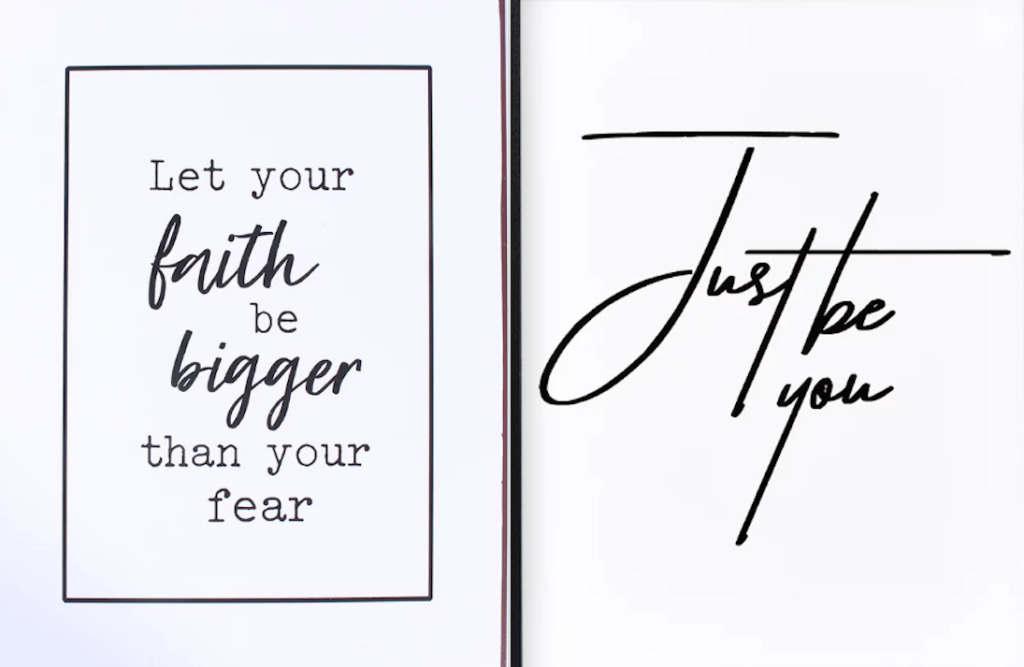 Let your
faith
be
bigger
than your
fear
Just be
you